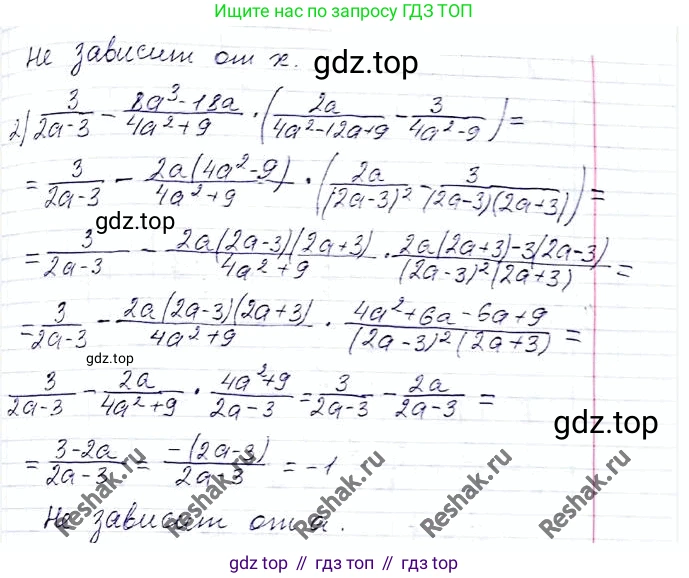 Ищите нас по запросу ГДЗ ТОП
не зависит от x.
gdz.top
2) 3/(2a-3) - (8a³-18a)/(4a²+9) · (2a/(4a²-12a+9) - 3/(4a²-9)) =
= 3/(2a-3) - 2a(4a²-9)/(4a²+9) · (2a/(2a-3)² - 3/((2a-3)(2a+3))) =
gdz.top
= 3/(2a-3) - 2a(2a-3)(2a+3)/(4a²+9) · (2a(2a+3)-3(2a-3))/((2a-3)²(2a+3)) =
= 3/(2a-3) - 2a(2a-3)(2a+3)/(4a²+9) · (4a²+6a-6a+9)/((2a-3)²(2a+3)) =
gdz.top
3/(2a-3) - 2a/(4a²+9) · (4a²+9)/(2a-3) = 3/(2a-3) - 2a/(2a-3) =
gdz.top
= (3-2a)/(2a-3) = -(2a-3)/(2a-3) = -1
Reshak.ru Reshak.ru Reshak.ru Reshak.ru
Не зависит от a.
gdz top // гдз топ // gdz.top